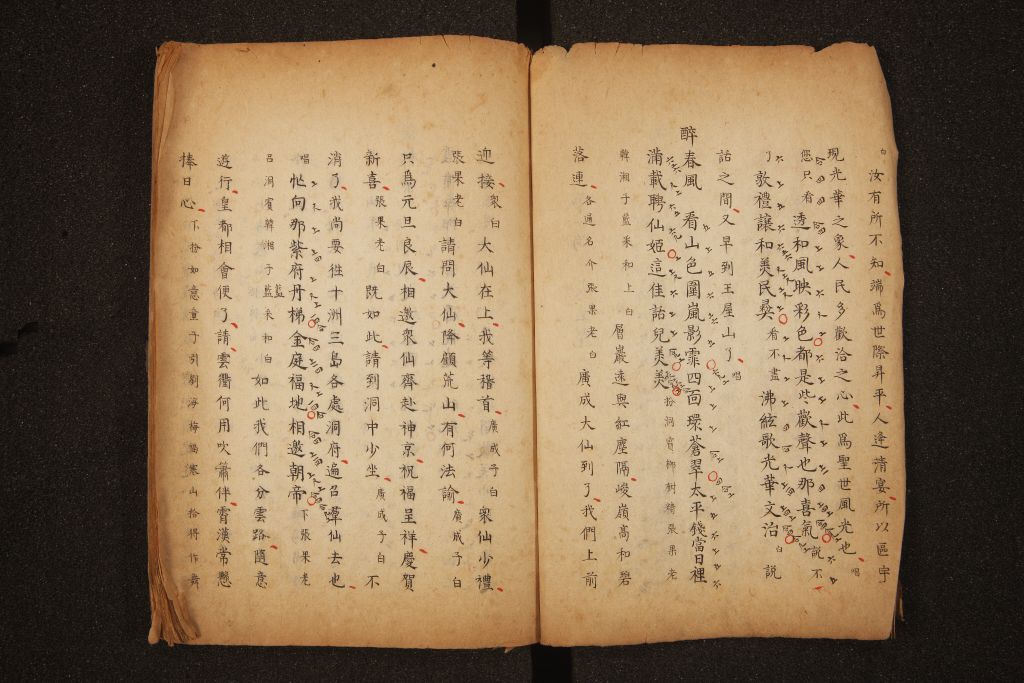 白 汝有所不知端爲世際昇平人逢清宴所以區宇
現光華之象人民多歡洽之心此爲聖世風光也 唱
您只看透和風映彩色都是些歡聲也那喜氣 說不
了 敦禮讓和美民彝 看不盡 沸絃歌光華文治 白 說
話之間又早到王屋山了 唱
醉春風 看山色圍嵐影霏四面環蒼翠太平錢當日裡
滿載聘仙姬這佳話兒美美 拾洞賓柳樹精張果老
韓湘子藍采和上 白 層巖遠與紅塵隔峻嶺高和碧
落連 各通名介 張果老白 廣成大仙到了我們上前
迎接 衆白 大仙在上我等稽首 廣成子白 衆仙少禮
張果老白 請問大仙降顧荒山有何法諭 廣成子白
只爲元旦良辰相邀衆仙齊赴神京祝福呈祥慶賀
新喜 張果老白 既如此請到洞中少坐 廣成子白 不
消了我尚要往十洲三島各處洞府遍召群仙去也
唱 忙向那紫府丹梯金庭福地相邀朝帝 下張果老
呂洞賓韓湘子藍采和白 如此我們各分雲路隨意
遊行皇都相會便了請雲衢何用吹簫伴霄漢常懸
捧日心 下拾如意童子引劉海梅福寒山拾得作舞